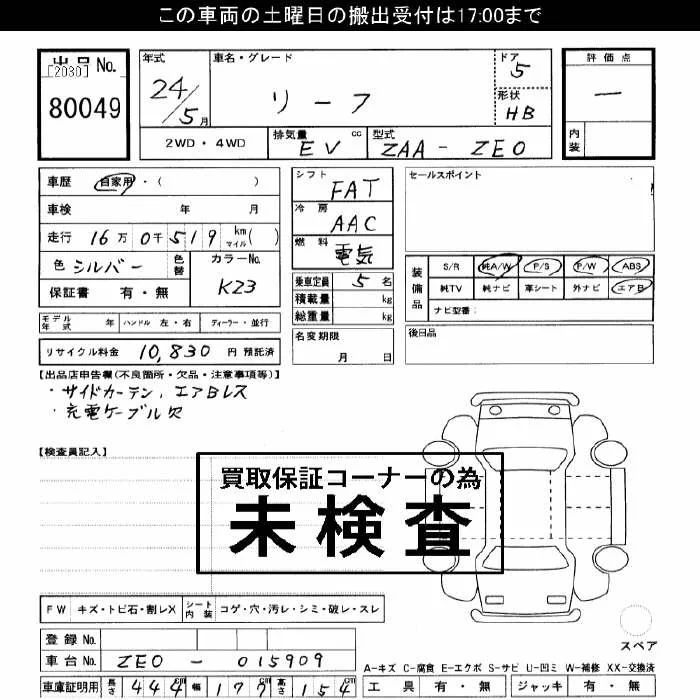 この車両の土曜日の搬出受付は17:00まで
出品No.
[2030]
80049
年式
24/5月
車名・グレード
リーフ
ドア
5
形状
HB
評価点
ー
内装
2WD・4WD
排気量 cc
EV
型式
ZAA-ZE0
車歴 自家用・( )
車検 年 月
走行 16万0千519km マイル( )
色 シルバー
色替
カラーNo.
K23
保証書 有・無
モデル年式 年 ハンドル 左・右 ディーラー・並行
リサイクル料金 10,830 円 預託済
シフト
FAT
冷房
AAC
燃料
電気
乗車定員 5名
積載量 kg
総重量 kg
名変期限
月 日
セールスポイント
装備品
S/R 純A/W P/S P/W ABS
純TV 純ナビ 革シート 外ナビ エアB
ナビ型番:
後日品
【出品店申告欄(不良箇所・欠品・注意事項等)】
・サイドカーテン,エアBレス
・充電ケーブル欠
【検査員記入】
買取保証コーナーの為
未検査
FW キズ・トビ石・割レX シート内装 コゲ・穴・汚レ・シミ・破レ・スレ
登録No.
車台No. ZE0-015909
車庫証明用 長さ 444cm 幅 177cm 高さ 154cm
スペア
A-キズ C-腐食 E-エクボ S-サビ U-凹ミ W-補修 XX-交換済
工具 有・無 ジャッキ 有・無